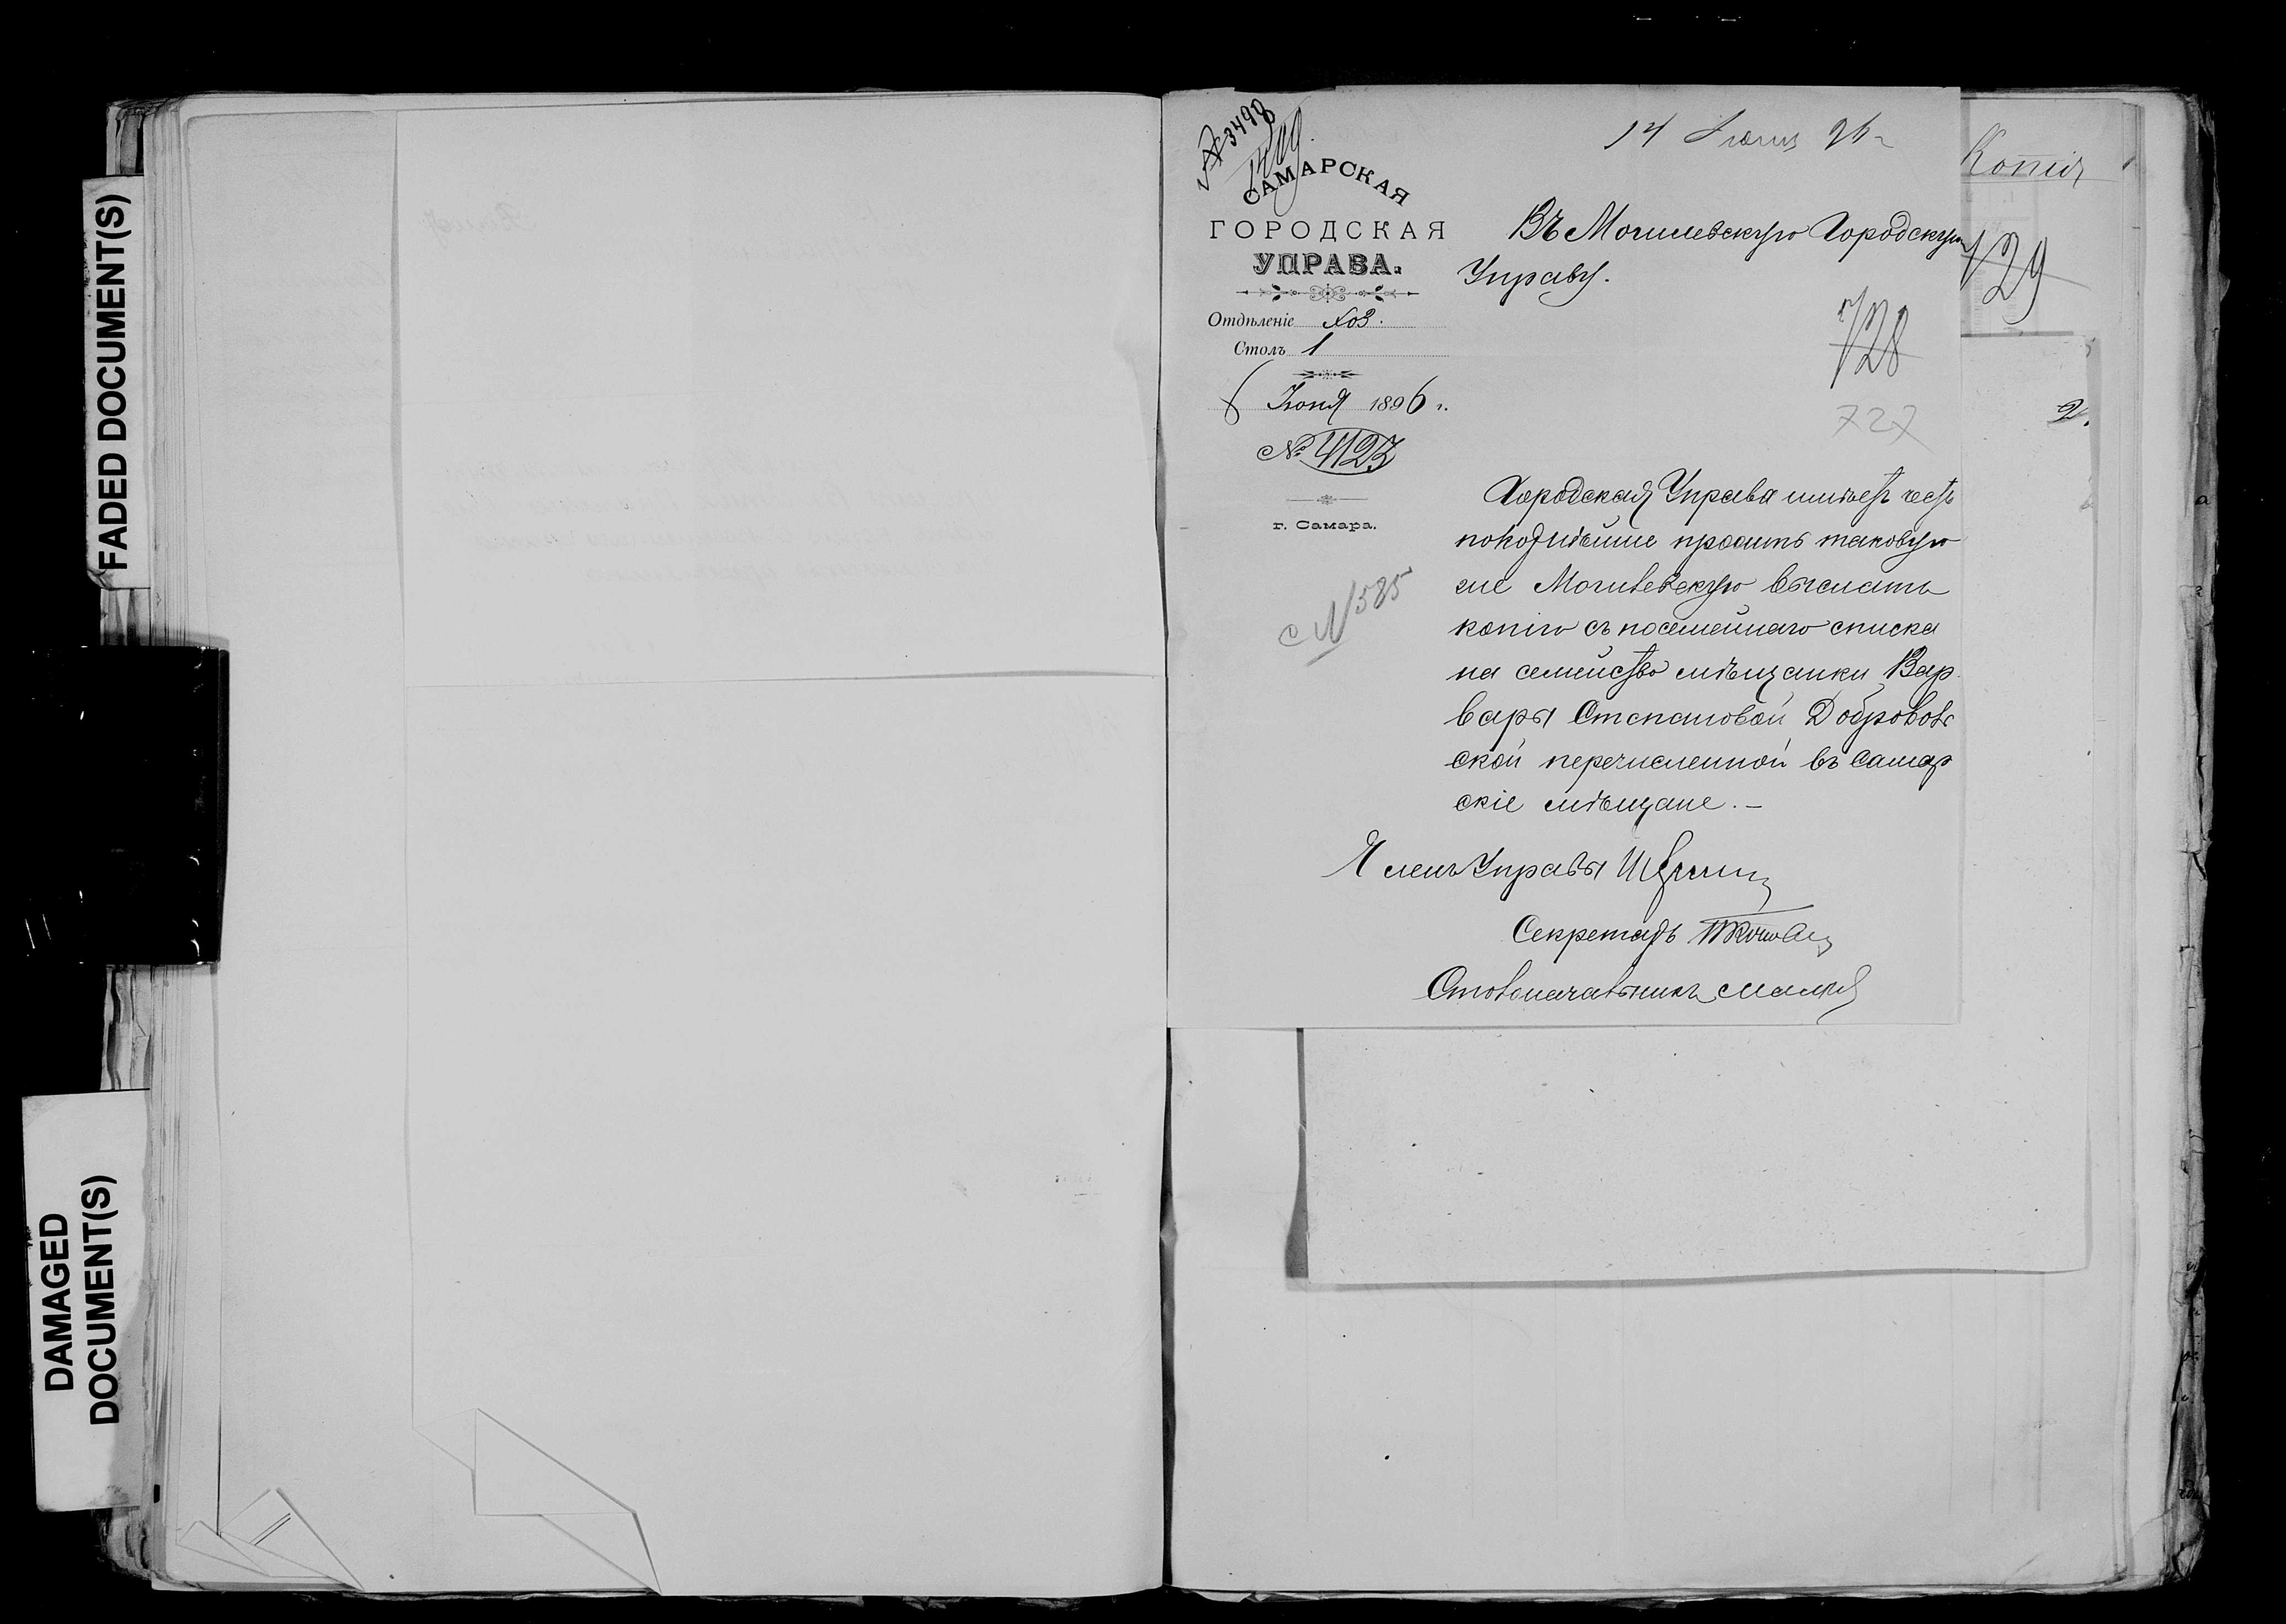 FADED DOCUMENT(S)
DAMAGED
DOCUMENT(S)
№ 3498
14 Іюня 96 г
Копія
САМАРСКАЯ
ГОРОДСКАЯ
УПРАВА.
Отдѣленіе Хоз.
Столъ 1
6 Іюня 1896 г.
№ 4123
г. Самара.
с № 585
Въ Могилевскую Городскую
Управу.
729
728
727
2.
Городская Управа имѣетъ честь
покорнѣйше просить таковую
же Могилевскую выслать
копію съ посемейнаго списка
на семейство мѣщанки Вар
вары Степановой Добровол
ской перечисленной въ Самар
скіе мѣщане. —
Членъ Управы
Секретарь
Столоначальникъ